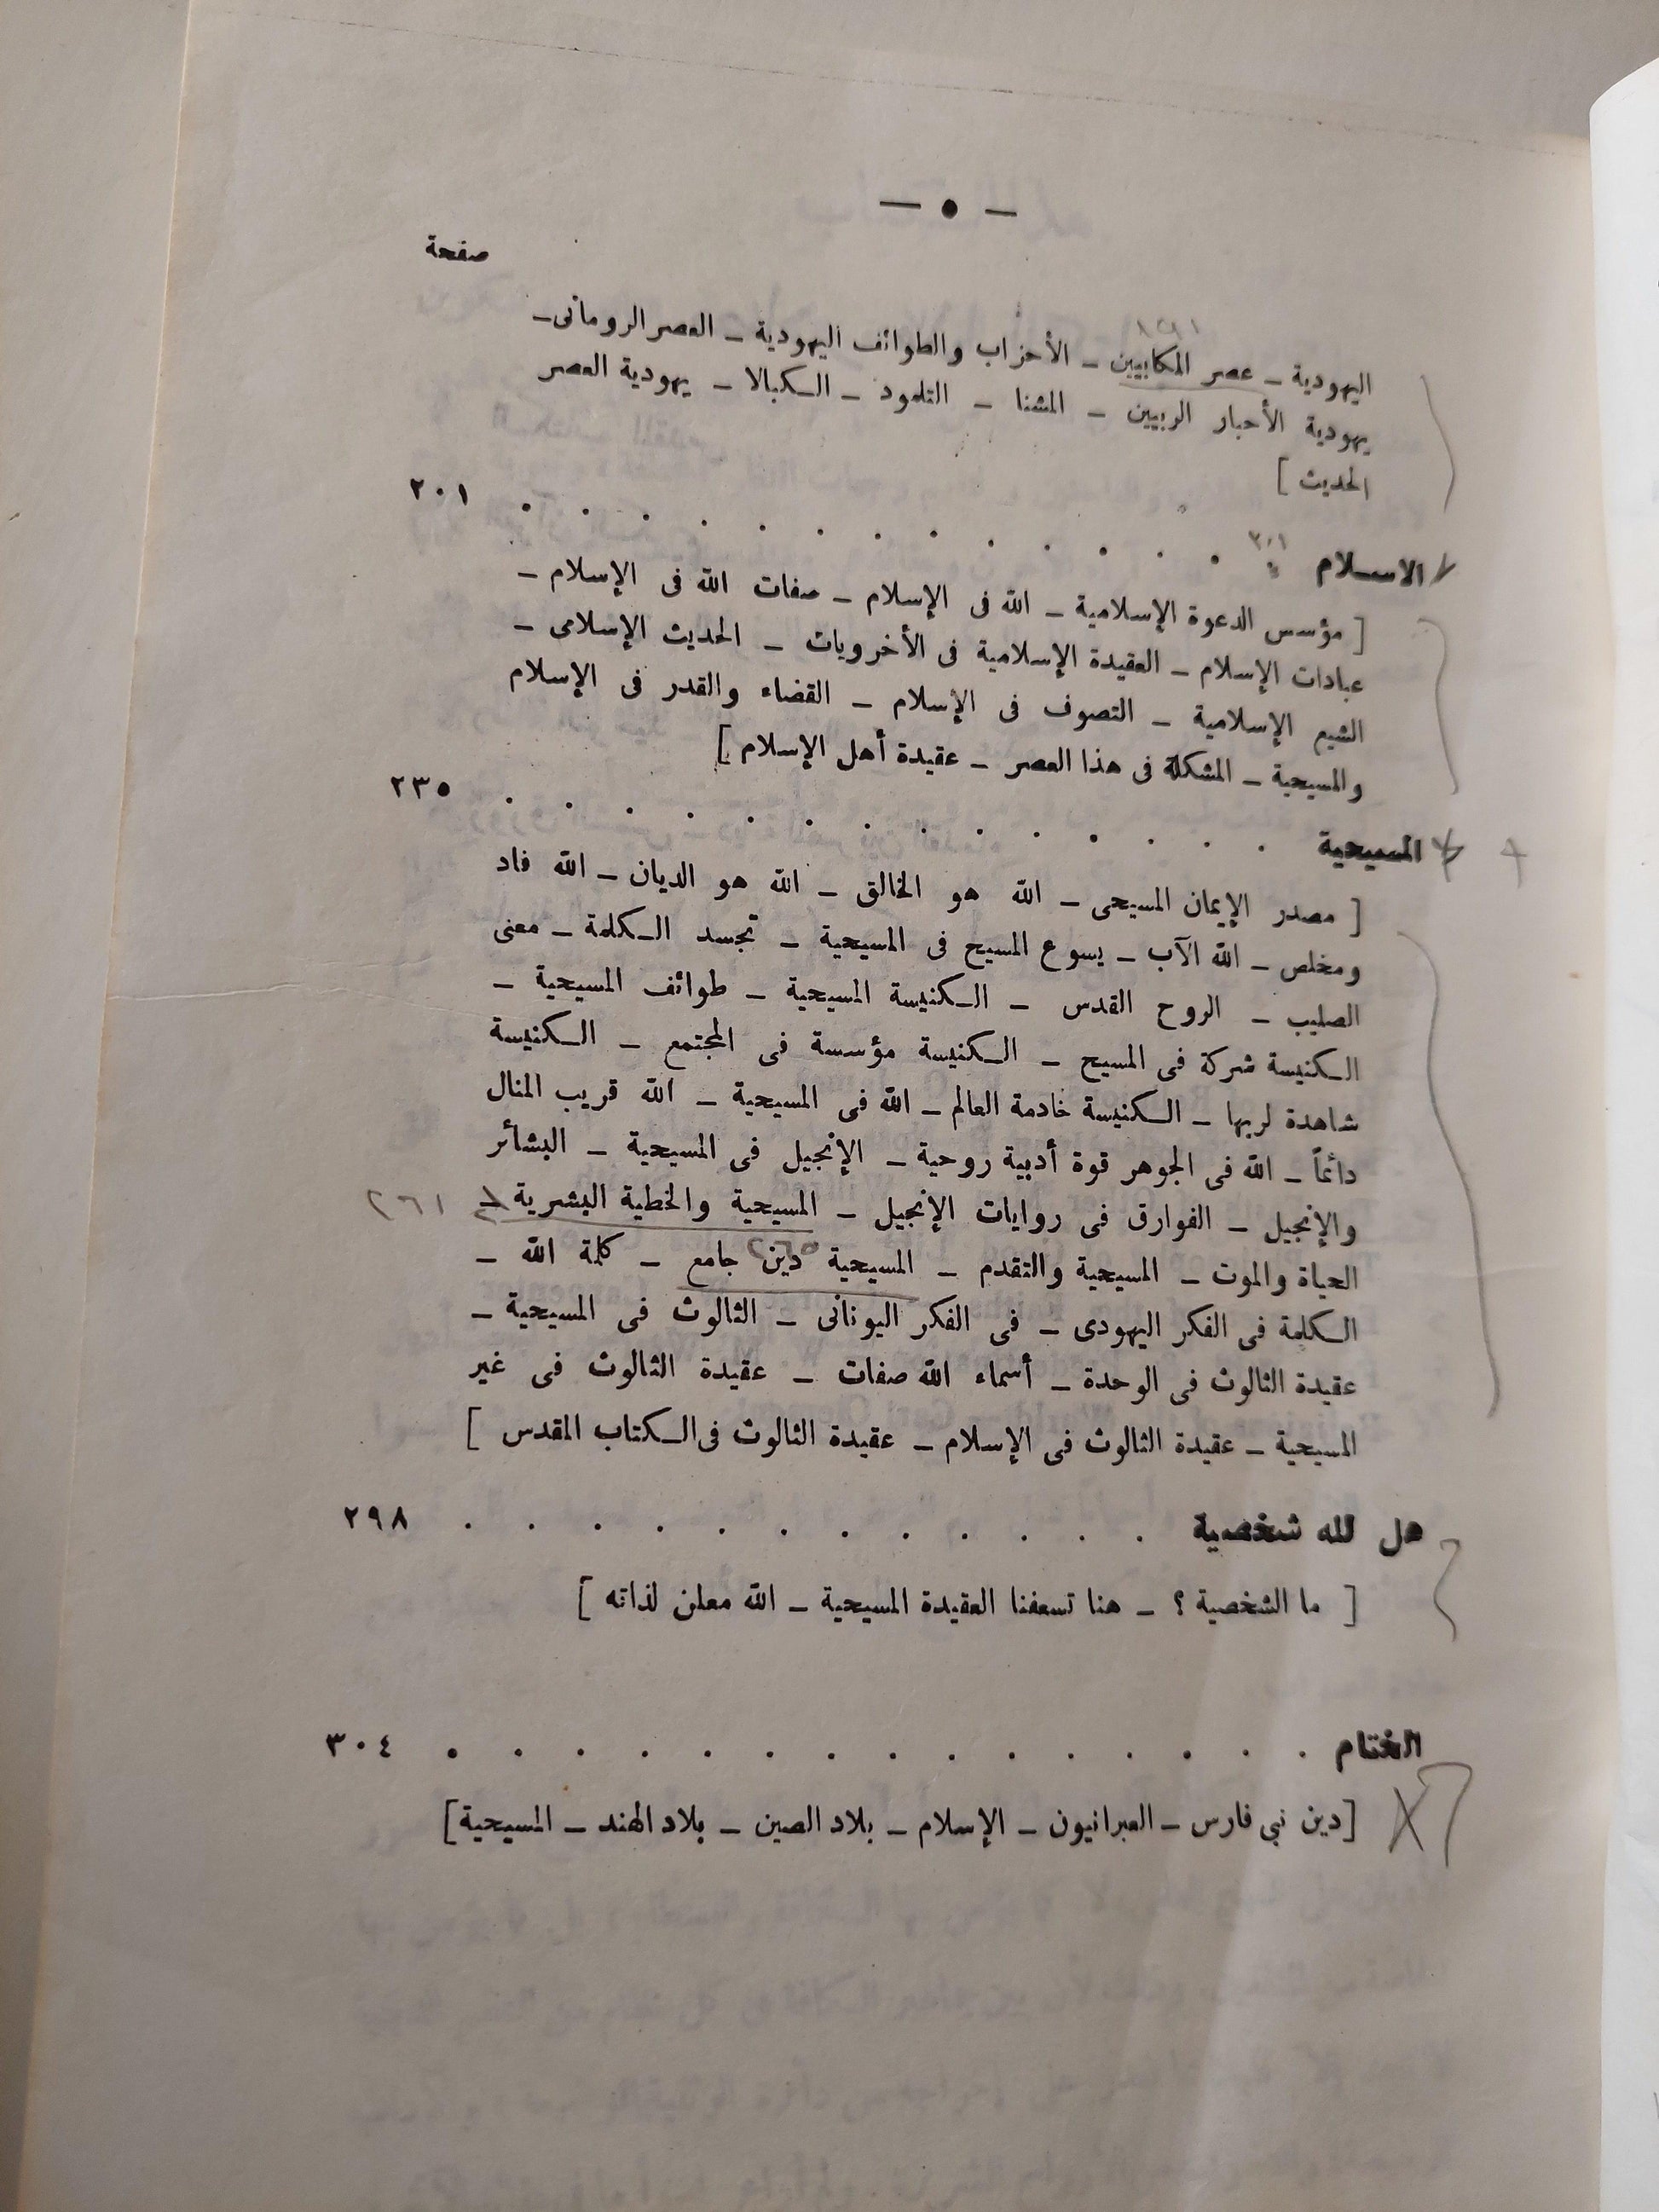 — ٥ —
صفحة
اليهودية – عصر المكابيين – الأحزاب والطوائف اليهودية – العصر الرومانى –
يهودية الأحبار الربيين – المشنا – التلمود – الكبالا – يهودية العصر
الحديث ]
الاسلام . . . . . . . . . . . . . ٢٠١
[ مؤسس الدعوة الإسلامية – الله فى الإسلام – صفات الله فى الإسلام –
عبادات الإسلام – العقيدة الإسلامية فى الأخرويات – الحديث الإسلامى –
الشيم الإسلامية – التصوف فى الإسلام – القضاء والقدر فى الإسلام
والمسيحية – المشكلة فى هذا العصر – عقيدة أهل الإسلام ]
المسيحية . . . . . . . . . . . . . . ٢٣٥
[ مصدر الإيمان المسيحى – الله هو الخالق – الله هو الديان – الله فاد
ومخلص – الله الآب – يسوع المسيح فى المسيحية – تجسد الكلمة – معنى
الصليب – الروح القدس – الكنيسة المسيحية – طوائف المسيحية –
الكنيسة شركة فى المسيح – الكنيسة مؤسسة فى المجتمع – الكنيسة
شاهدة لربها – الكنيسة خادمة العالم – الله فى المسيحية – الله قريب المنال
دائماً – الله فى الجوهر قوة أدبية روحية – الإنجيل فى المسيحية – البشائر
والإنجيل – الفوارق فى روايات الإنجيل – المسيحية والخطية البشرية – ٢٦١
الحياة والموت – المسيحية والتقدم – المسيحية دين جامع – كلمة الله –
الكلمة فى الفكر اليهودى – فى الفكر اليونانى – الثالوث فى المسيحية –
عقيدة الثالوث فى الوحدة – أسماء الله صفات – عقيدة الثالوث فى غير
المسيحية – عقيدة الثالوث فى الإسلام – عقيدة الثالوث فى الكتاب المقدس ]
هل لله شخصية . . . . . . . . . . . . ٢٩٨
[ ما الشخصية ؟ – هنا تسعفنا العقيدة المسيحية – الله معلن لذاته ]
الختام . . . . . . . . . . . . . . . ٣٠٤
[دين نبى فارس – العبرانيون – الإسلام – بلاد الصين – بلاد الهند – المسيحية]